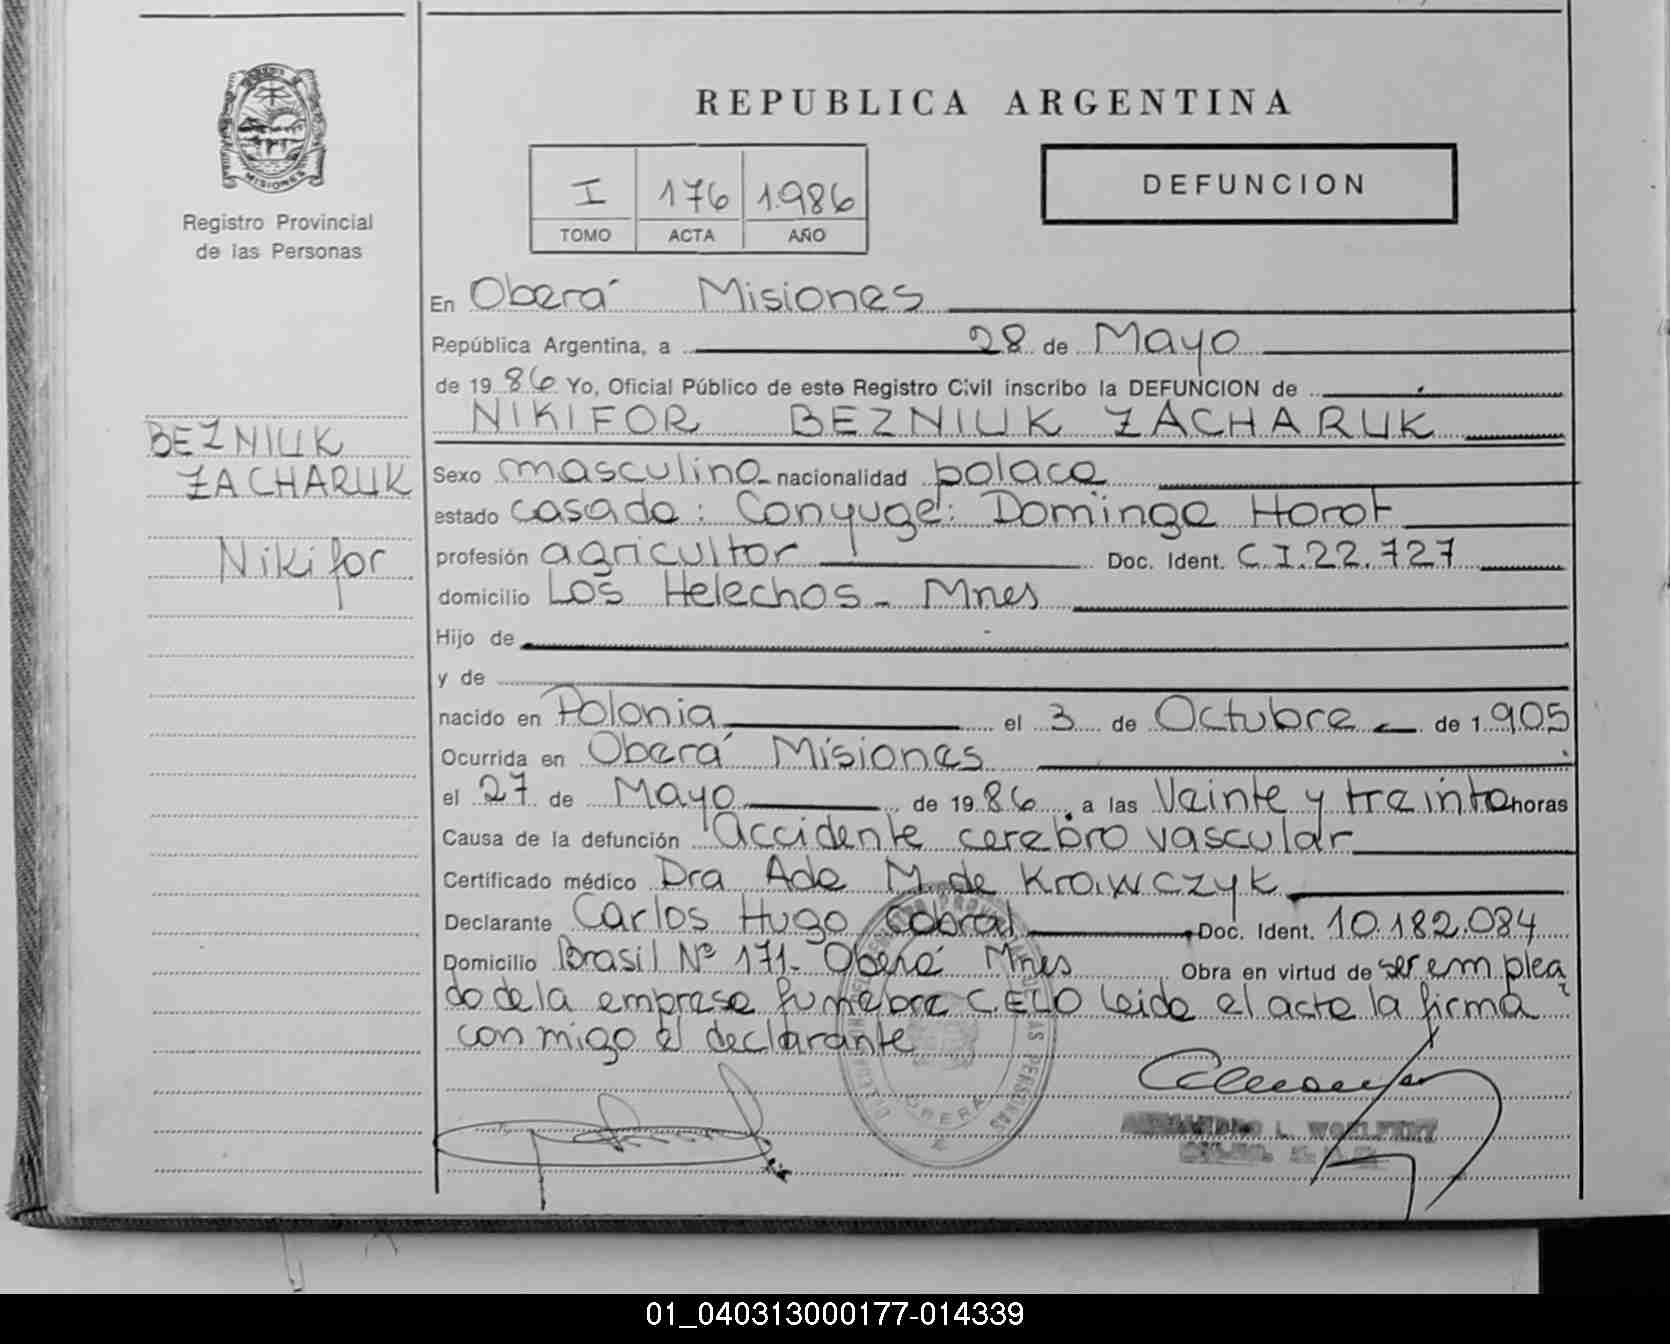 MISIONES
Registro Provincial
de las Personas
BEZNIUK
ZACHARUK
Nikifor
REPUBLICA ARGENTINA
I 176 1.986
TOMO ACTA AÑO
DEFUNCION
En Oberá Misiones
República Argentina, a 28 de Mayo
de 19 86 Yo, Oficial Público de este Registro Civil inscribo la DEFUNCION de
NIKIFOR BEZNIUK ZACHARUK
Sexo masculino nacionalidad polaca
estado casado: Conyuge: Dominga Horot
profesión agricultor Doc. Ident. C.I.22.727
domicilio Los Helechos - Mnes
Hijo de
y de
nacido en Polonia el 3 de Octubre de 1.905
Ocurrida en Oberá Misiones
el 27 de Mayo de 19 86, a las Veinte y treinta horas
Causa de la defunción Accidente cerebro vascular
Certificado médico Dra Ada M. de Krawczyk
Declarante Carlos Hugo Cabral Doc. Ident. 10.182.084
Domicilio Brasil Nº 171- Oberá Mnes Obra en virtud de ser emplea
do de la empresa funebre C.E.L.O leida el acta la firma
conmigo el declarante
OBERA
01_040313000177-014339